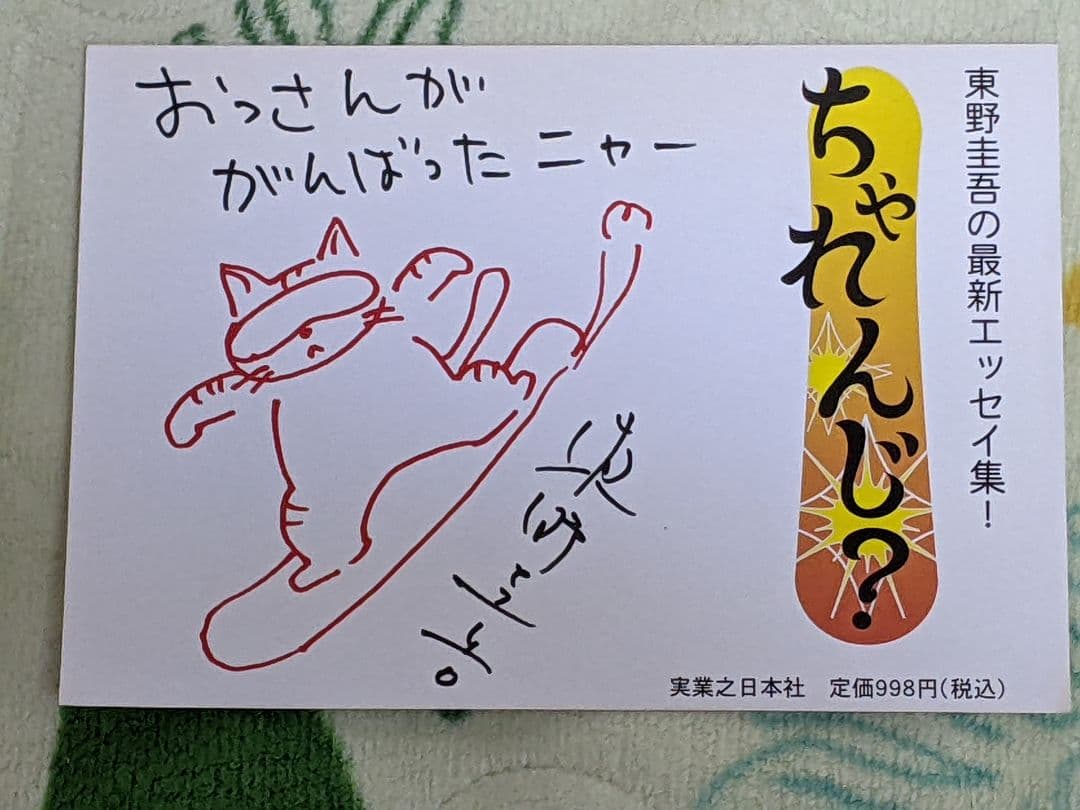 東野圭吾の最新エッセイ集!
ちゃれんじ?
おっさんが
がんばったニャー
東野圭吾
実業之日本社 定価998円(税込)